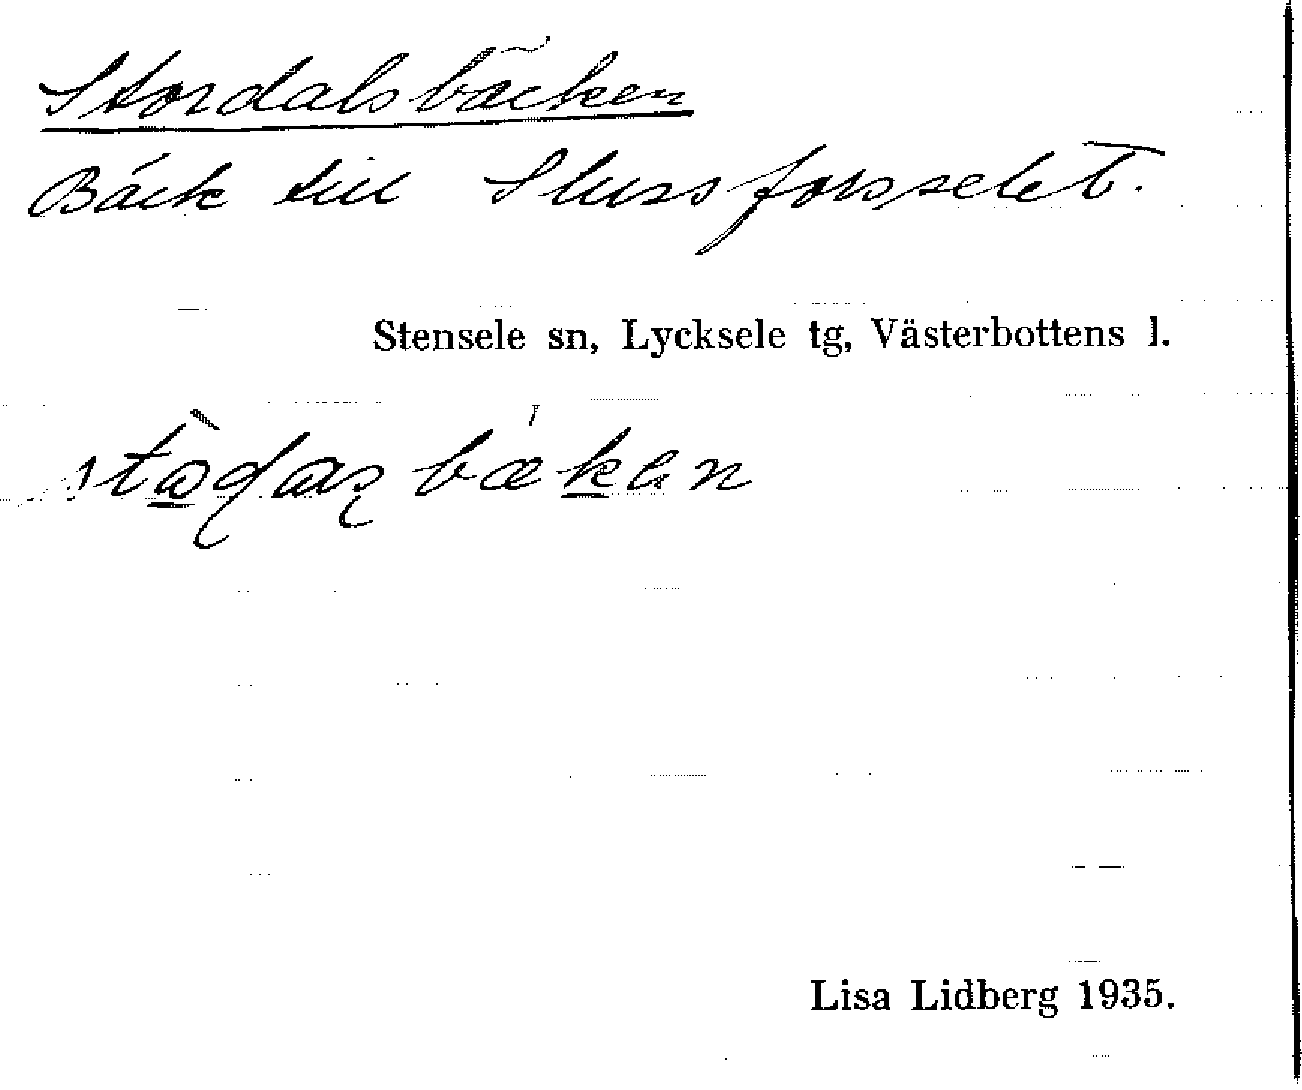 Stordalsbäcken
Bäck till Slussforsselet.
Stensele sn, Lycksele tg, Västerbottens l.
Lisa Lidberg 1935.